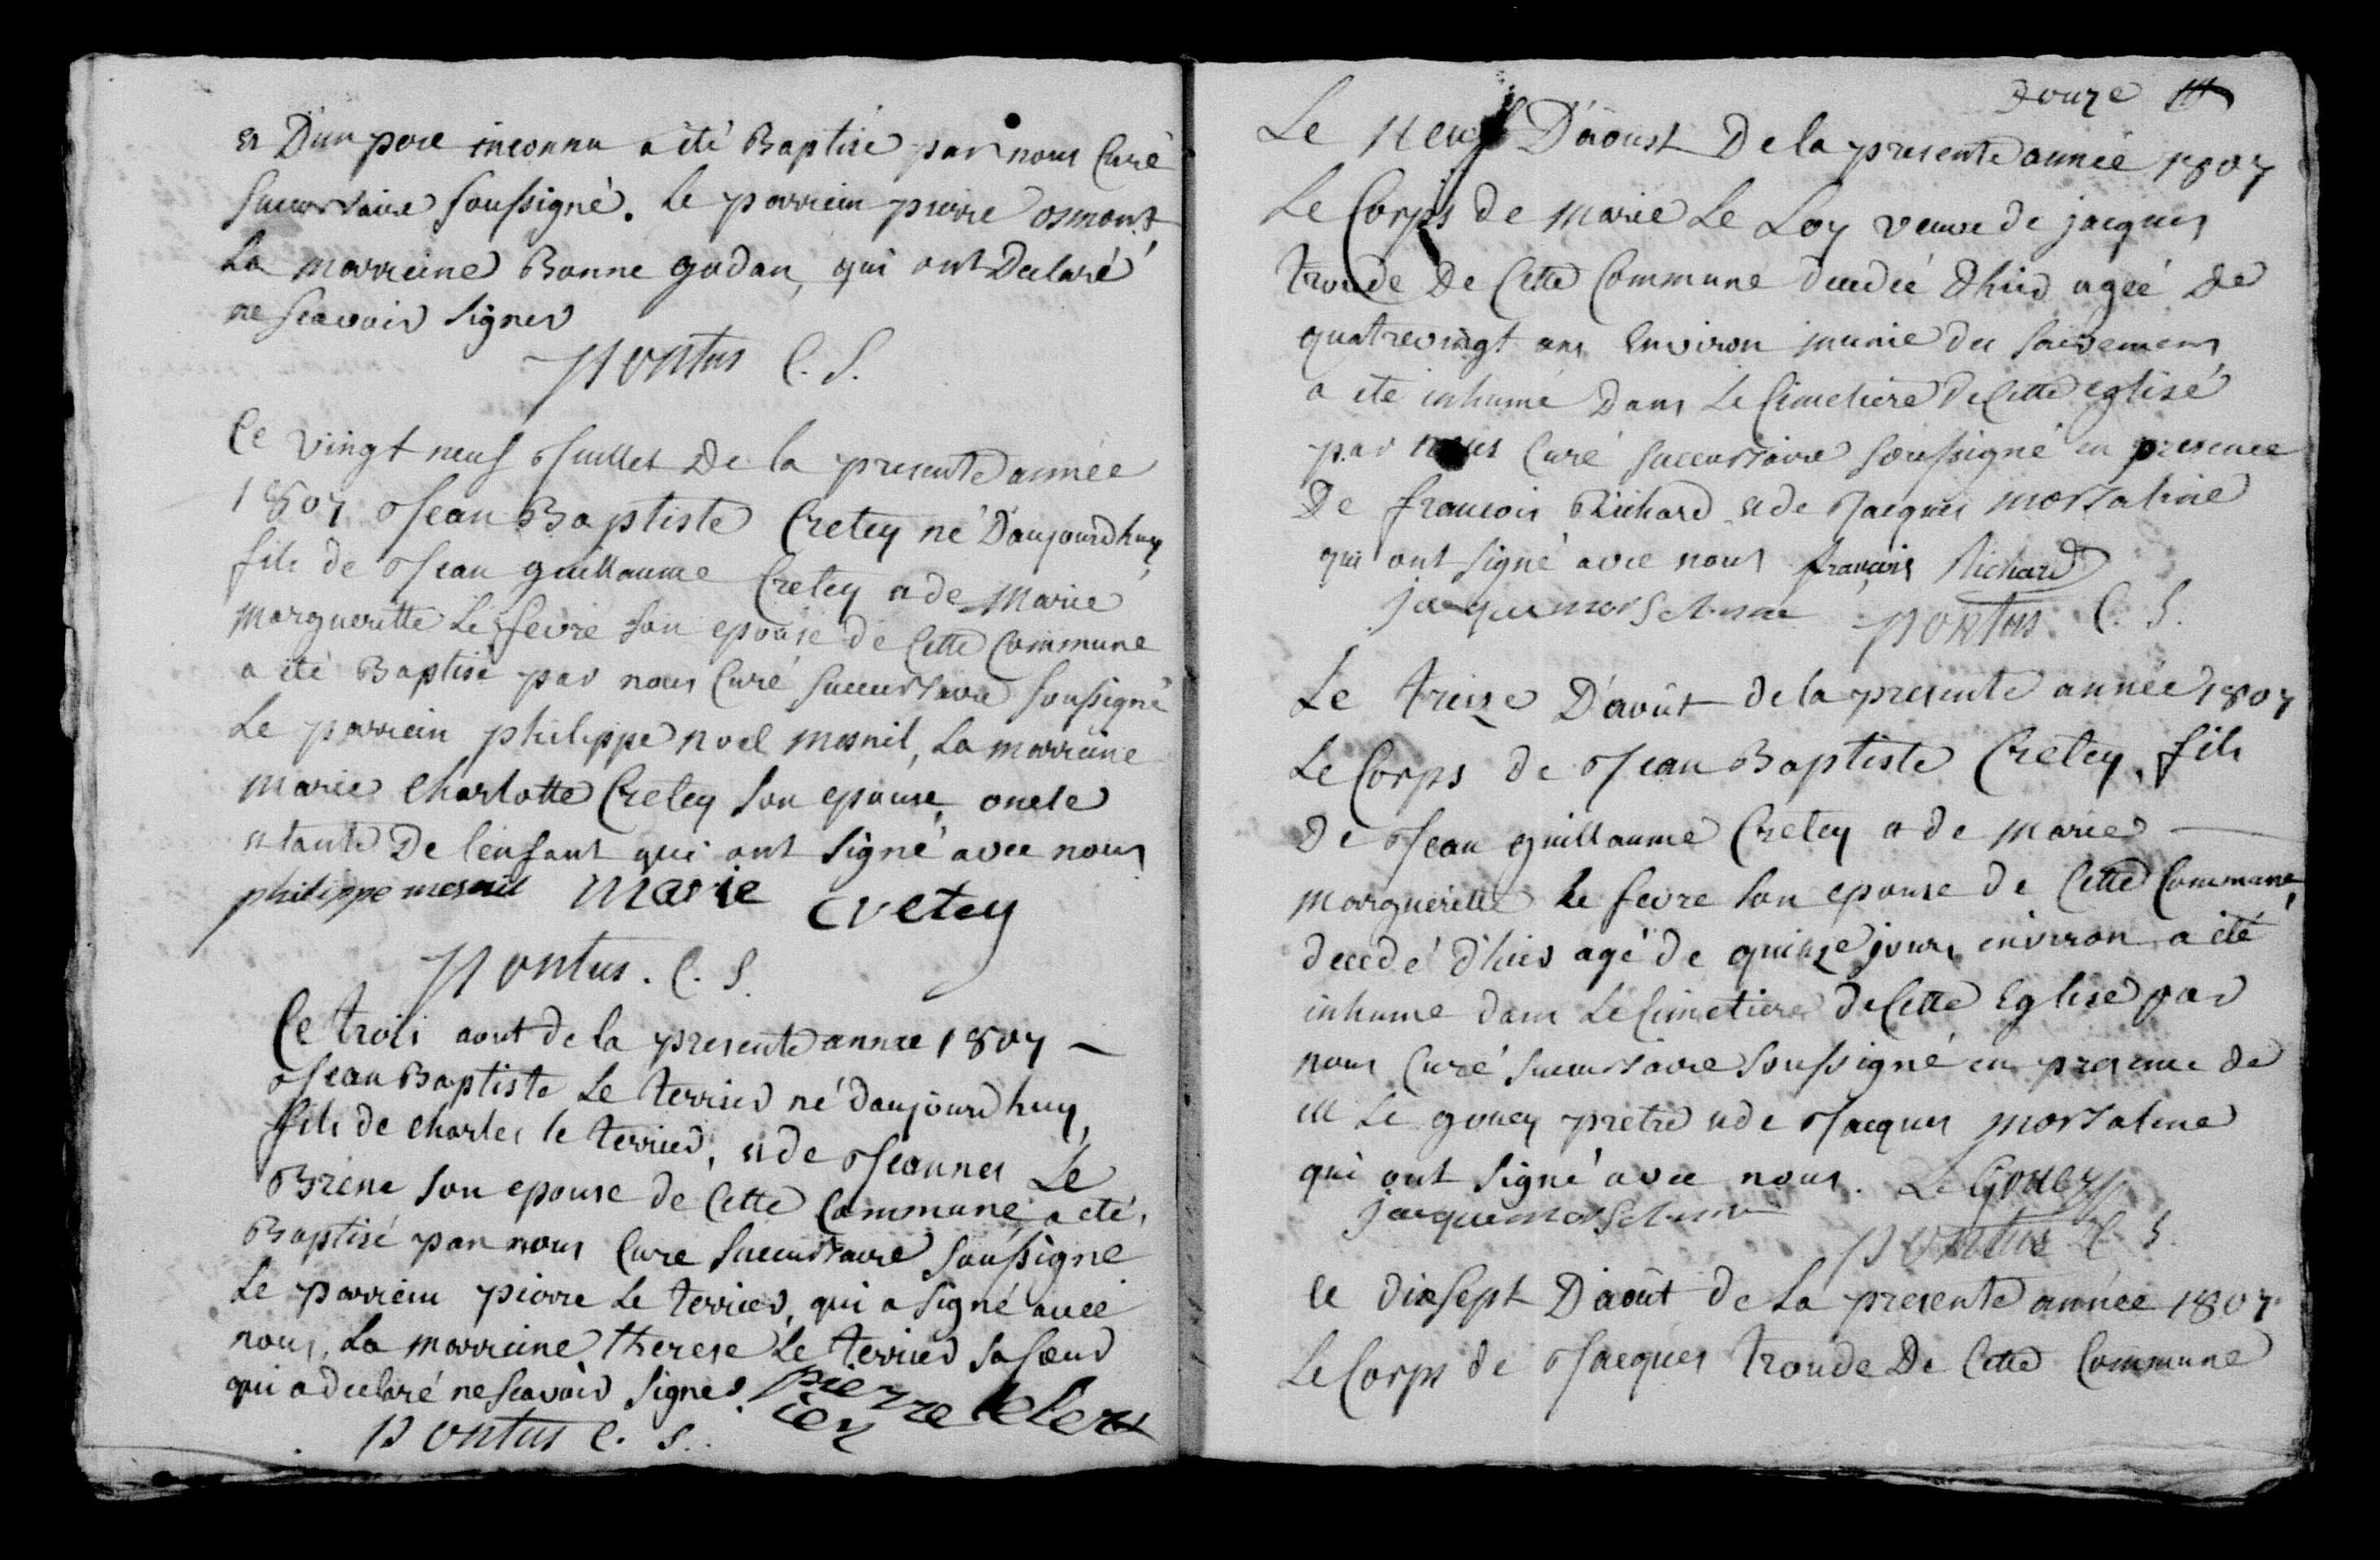 et D'un pere inconnu a été Baptisé par nous Curé
succursaire soussigné. Le parrein pierre osmont,
La marreine Bonne godan, qui ont Declaré
ne scavoir signer
Pontus C. S.
Ce vingt neuf Juillet De la presente année
1807 Jean Baptiste Cretey né D'aujourdhuy,
fils de Jean guillaume Cretey et de Marie
Margueritte Le fevre son epouse de Cette Commune
a été Baptisé par nous Curé succursaire soussigné
Le parrein philippe noel mesnil, La marreine
marie Charlotte Cretey son epouse, oncle
et tante De l'enfant qui ont signé avec nous
philippe mesnil Marie Cretey
Pontus. C. S.
Ce trois aout de la presente annee 1807 —
Jean Baptiste Le terrier né daujourdhuy,
fils de Charles le terrier, et de Jeanne Le
Brene son epouse de Cette Commune a été,
Baptisé par nous Curé succursaire soussigné
Le parrein pierre Le terrier, qui a signé avec
nous, La marreine therese Le terrier sa soeur
qui a declaré ne scavoir signer. pierre leter
ier
Pontus C. S.
Douze
Le Neuf D'aoust De la presente année 1807
Le Corps de Marie Le Loy veuve de jacques
troude De Cette Commune decedée d'hier agée De
quatrevingt ans Environ munie des sacremens
a été inhumé Dans Le Cimetiere De Cette eglise
par nous Curé succursaire soussigné en presence
De francois Richard et de Jacques Morsaline
qui ont signé avec nous francois Richard
jacque morsaline Pontus. C. S.
Le treize D'août de la presente année 1807
Le Corps de Jean Baptiste Cretey, fils
De Jean guillaume Cretey et de Marie —
Marguerite le fevre son epouse de Cette Commune,
decedé d'hier agé de quinze jours environ a été
inhumé dans Le Cimetiere de Cette Eglise par
nous Curé succursaire soussigné en presence de
M Le gouey prêtre et de Jacques Morsaline
qui ont signé avec nous. Le Gouey
jacque morsaline
Pontus C. S.
Le dix sept D'août de La presente année 1807
Le Corps de Jacques troude De Cette Commune